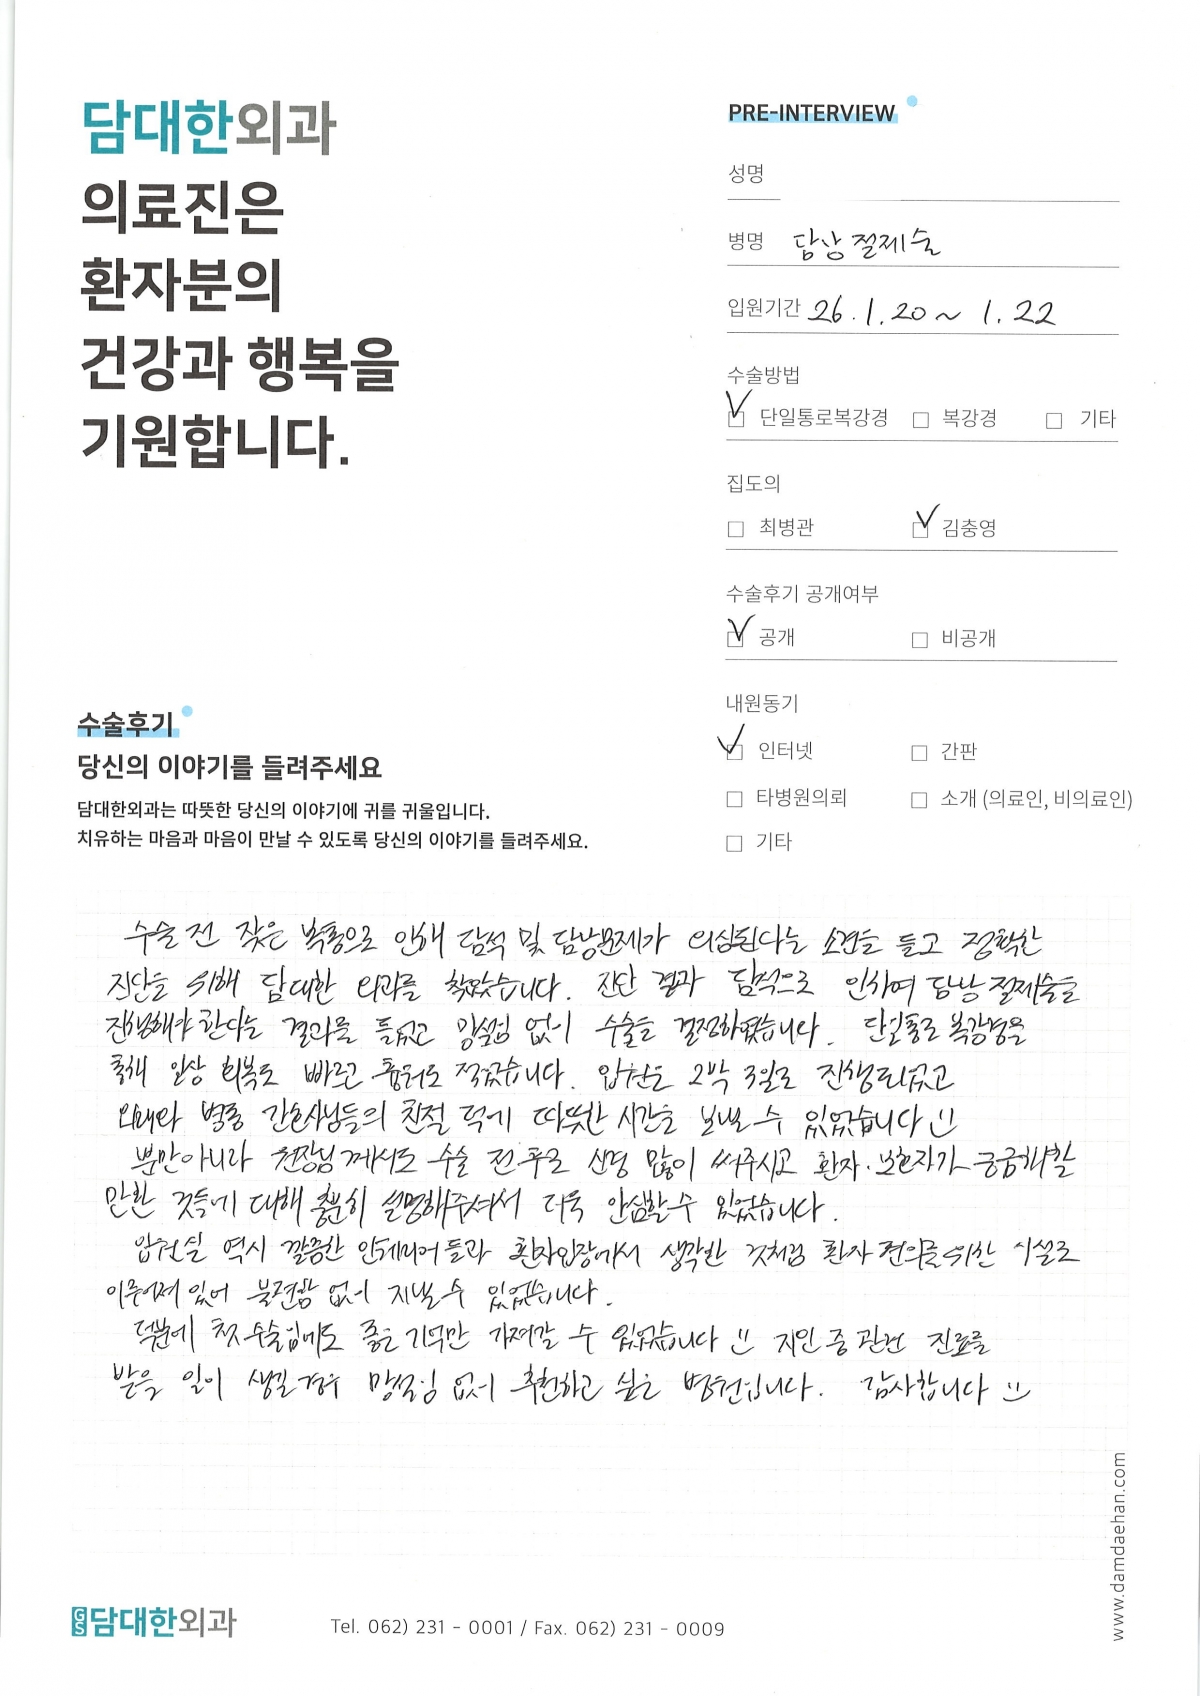 담대한외과
의료진은
환자분의
건강과 행복을
기원합니다.
PRE-INTERVIEW
성명
병명 담낭절제술
입원기간 26.1.20 ~ 1.22
수술방법
☑ 단일통로복강경 □ 복강경 □ 기타
집도의
□ 최병관 ☑ 김충영
수술후기 공개여부
☑ 공개 □ 비공개
내원동기
☑ 인터넷 □ 간판
□ 타병원의뢰 □ 소개 (의료인, 비의료인)
□ 기타
수술후기
당신의 이야기를 들려주세요
담대한외과는 따뜻한 당신의 이야기에 귀를 귀울입니다.
치유하는 마음과 마음이 만날 수 있도록 당신의 이야기를 들려주세요.
수술 전 잦은 복통으로 인해 담석 및 담낭문제가 의심된다는 소견을 듣고 정확한
진단을 위해 담대한 외과를 찾았습니다. 진단 결과 담석으로 인하여 담낭절제술을
진행해야 한다는 결과를 들었고 망설임 없이 수술을 결정하였습니다. 단일통로 복강경을
통해 일상 회복도 빠르고 흉터도 적었습니다. 입원은 2박 3일로 진행되었고
외래와 병동 간호사님들의 친절 덕에 따뜻한 시간을 보낼 수 있었습니다 :)
뿐만아니라 원장님께서도 수술 전후로 신경 많이 써주시고 환자·보호자가 궁금해할
만한 것들에 대해 충분히 설명해주셔서 더욱 안심할 수 있었습니다.
입원실 역시 깔끔한 인테리어들과 환자입장에서 생각한 것처럼 환자 편의를 위한 시설로
이루어져 있어 불편함 없이 지낼 수 있었습니다.
덕분에 첫 수술임에도 좋은 기억만 가져갈 수 있었습니다 :) 지인 중 관련 진료를
받을 일이 생길 경우 망설임 없이 추천하고 싶은 병원입니다. 감사합니다 :)
www.damdaehan.com
GS 담대한외과
Tel. 062) 231 - 0001 / Fax. 062) 231 - 0009